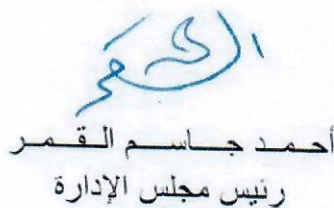 أحمد جاسم القمر
رئيس مجلس الإدارة